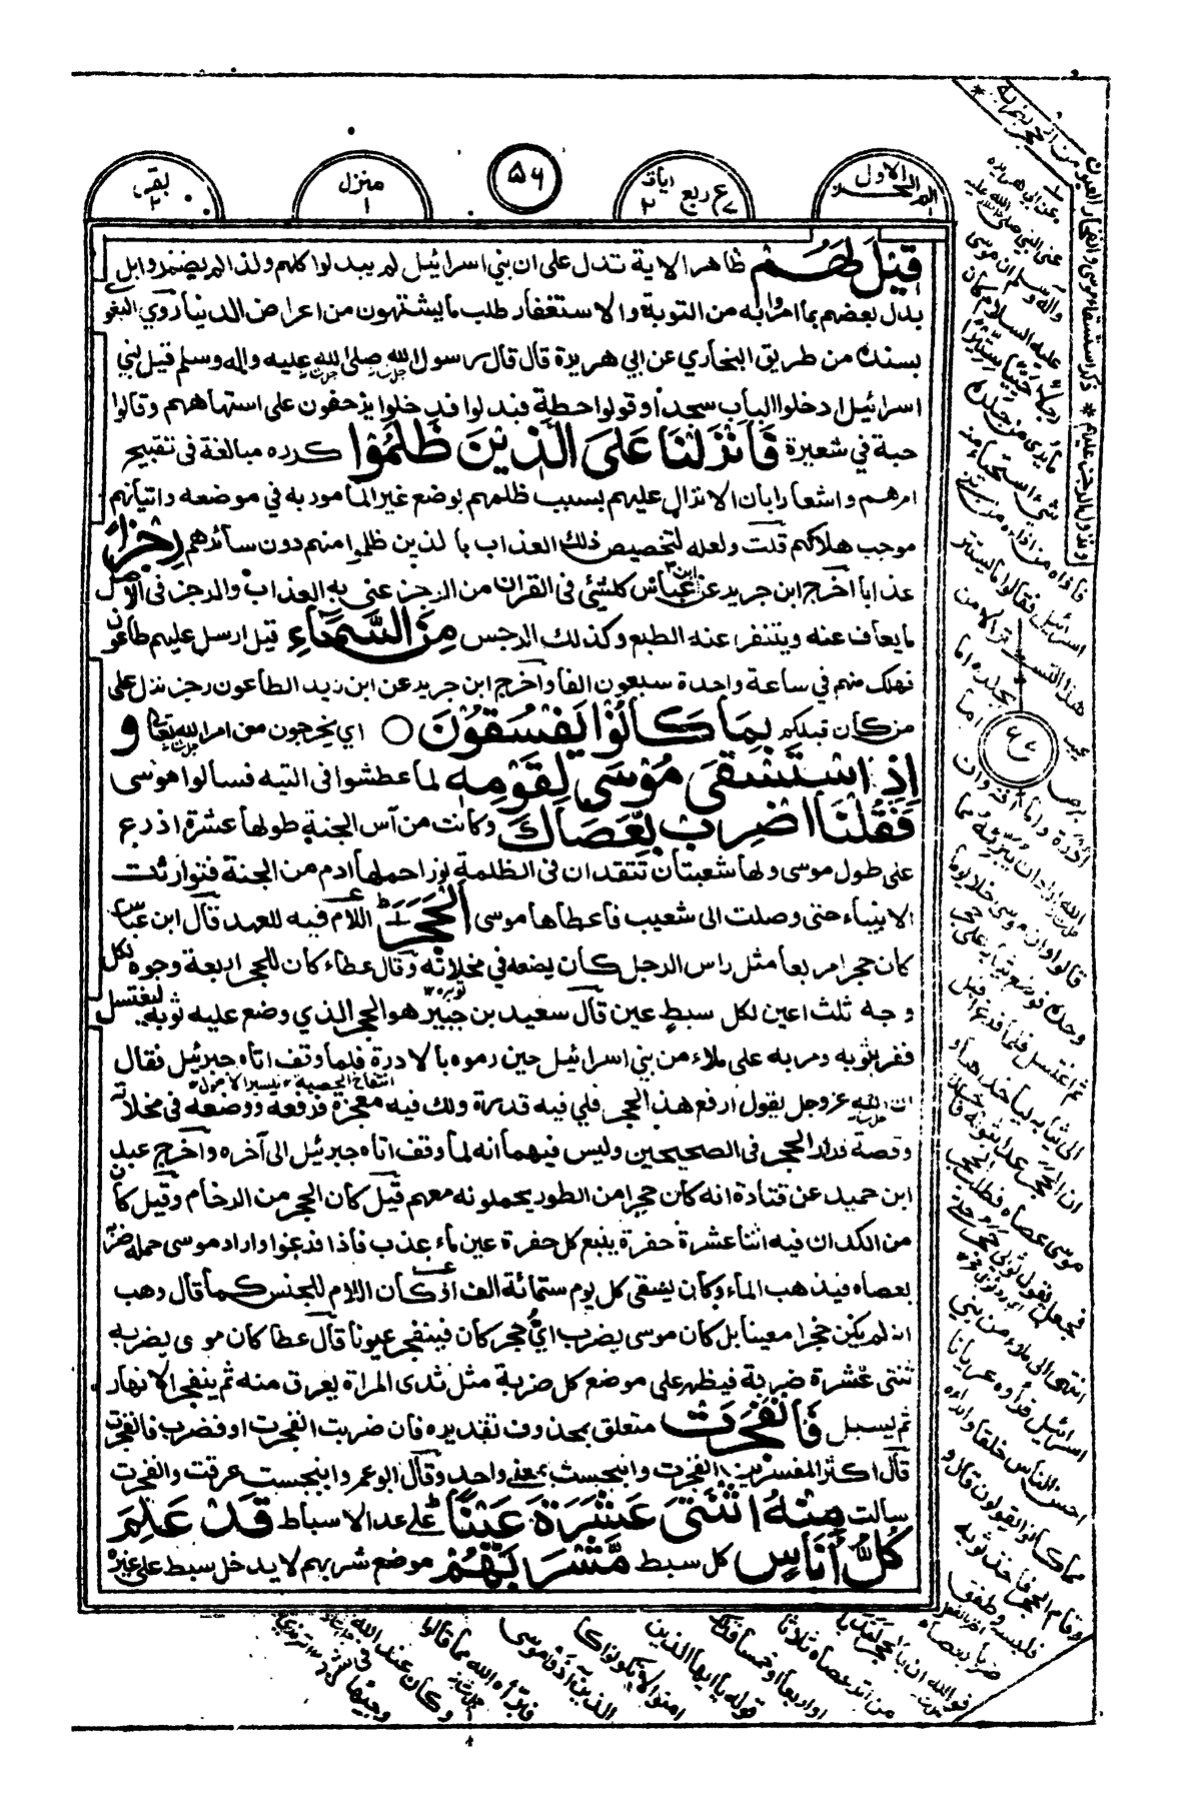 الم الجزء الاول
ع ربع ايات
٢
۵۶
منزل
١
بقر
٢
قِيْلَ لَهُمْ ظاهر الاية تدل على ان بني اسرائيل لم يبدلوا كلهم ولذا لم يضمر وابل
بدل بعضهم بما امروا به من التوبة والاستغفار طلب ما يشتهون من اعراض الدنيا روي البغو
بسنده من طريق البخاري عن ابي هريرة قال قال رسول الله صلى الله عليه واله وسلم قيل لبني
اسرائيل ادخلوا الباب سجدا وقولوا حطة فبدلوا فدخلوا يزحفون على استاههم وقالوا
حبة في شعيرة فَاَنْزَلْنَا عَلَى الَّذِيْنَ ظَلَمُوْا كرره مبالغة في تقبيح
امرهم واشعارا بان الانزال عليهم بسبب ظلمهم بوضع غير المامور به في موضعه واتيانهم
موجب هلاكهم قلت ولعله لتخصيص ذلك العذاب بالذين ظلموا منهم دون سائرهم رِجْزًا
عذابا اخرج ابن جرير عن ابن عباس كل شئ في القران من الرجز عني به العذاب والرجز في الاصل
ما يعاف عنه ويتنفر عنه الطبع وكذلك الرجس مِنَ السَّمَآءِ قيل ارسل عليهم طاعون
فهلك منهم في ساعة واحدة سبعون الفا واخرج ابن جرير عن ابن زيد الطاعون رجز نزل على
من كان قبلكم بِمَا كَانُوْا يَفْسُقُوْنَ ○ اي يخرجون من امر الله تعالى وَ
اِذِ اسْتَسْقٰى مُوْسٰى لِقَوْمِهٖ لما عطشوا في التيه فسالوا موسى
فَقُلْنَا اضْرِبْ بِّعَصَاكَ وكانت من آس الجنة طولها عشرة اذرع
على طول موسى ولها شعبتان تتقدان في الظلمة نورا حملها ادم من الجنة فتوارثت
الانبياء حتى وصلت الى شعيب فاعطاها موسى الْحَجَرَ اللام فيه للعهد قال ابن عباس
كان حجرا مربعا مثل راس الرجل كان يضعه في مخلاته وقال عطاء كان للحجر اربعة وجوه لكل
وجه ثلث اعين لكل سبط عين قال سعيد بن جبير هو الحجر الذي وضع عليه ثوبه ليغتسل
ففر بثوبه ومر به على ملاء من بني اسرائيل حين رموه بالادرة فلما وقف اتاه جبرئيل فقال
انتفاخ الخصية
ان الله عز وجل يقول ارفع هذا الحجر فلي فيه قدرة ولك فيه معجزة فرفعه ووضعه في مخلاته
وقصة فرار الحجر في الصحيحين وليس فيهما انه لما وقف اتاه جبرئيل الى آخره واخرج عبد
ابن حميد عن قتادة انه كان حجرا من الطور يحملونه معهم قيل كان الحجر من الرخام وقيل كان
من الكدان فيه اثنا عشرة حفرة ينبع كل حفرة عين ماء عذب فاذا فرغوا واراد موسى حمله ضرب
بعصاه فيذهب الماء وكان يسقى كل يوم ستمائة الف او كان اللام للجنس كما قال وهب
انه لم يكن حجرا معينا بل كان موسى يضرب اي حجر كان فينفجر عيونا قال عطا كان موسى يضربه
ثنتي عشرة ضربة فيظهر على موضع كل ضربة مثل ثدى المراة يعرق منه ثم ينفجر الانهار
ثم يسيل فَانْفَجَرَتْ متعلق بمحذوف تقديره فان ضربت انفجرت او فضرب فانفجرت
قال اكثر المفسرين انفجرت وانبجست بمعنى واحد وقال ابو عمر وانبجست عرقت وانفجرت
سالت مِنْهُ اثْنَتَيْ عَشْرَةَ عَيْنًا على عدد الاسباط قَدْ عَلِمَ
كُلُّ اُنَاسٍ كل سبط مَّشْرَبَهُمْ موضع شربهم لا يدخل سبط على غيره
ذكر استسقاء موسى وانفجار العيون من الحجر بضربه
ونزول الرجز عليهم
عن ابي هريرة
عن النبي صلى الله عليه
واله وسلم ان موسى
عليه السلام كان
رجلا حييا ستيرا
ما يرى من جلده
شئ استحياء منه
فاذاه من اذاه من بني
اسرائيل فقالوا ما يستتر
هذا التستر الا من
عيب بجلده اما
برص واما
ادرة واما افة وان
الله اراد ان يبرئه مما
قالوا وان موسى خلا يوما
وحده فوضع ثيابه على حجر
ثم اغتسل فلما فرغ اقبل
الى ثيابه لياخذها و
ان الحجر عدا بثوبه فاخذ
موسى عصاه فطلب الحجر
فجعل يقول ثوبي حجر حتى
انتهى الى ملاء من بني
اسرائيل فراوه عريانا
احسن الناس خلقا وابراءه
مما كانوا يقولون قال و
وقام الحجر فاخذ ثوبه
فلبسه وطفق
ضربا بعصاه
فوالله ان بالحجر لندبا
من اثر عصاه ثلاثا
او اربعا او خمسا فذلك
قوله يا ايها الذين
امنوا لا تكونوا كا
الذين آذوا موسى
فبرأه الله مما قالوا
وكان عند الله
وجيها